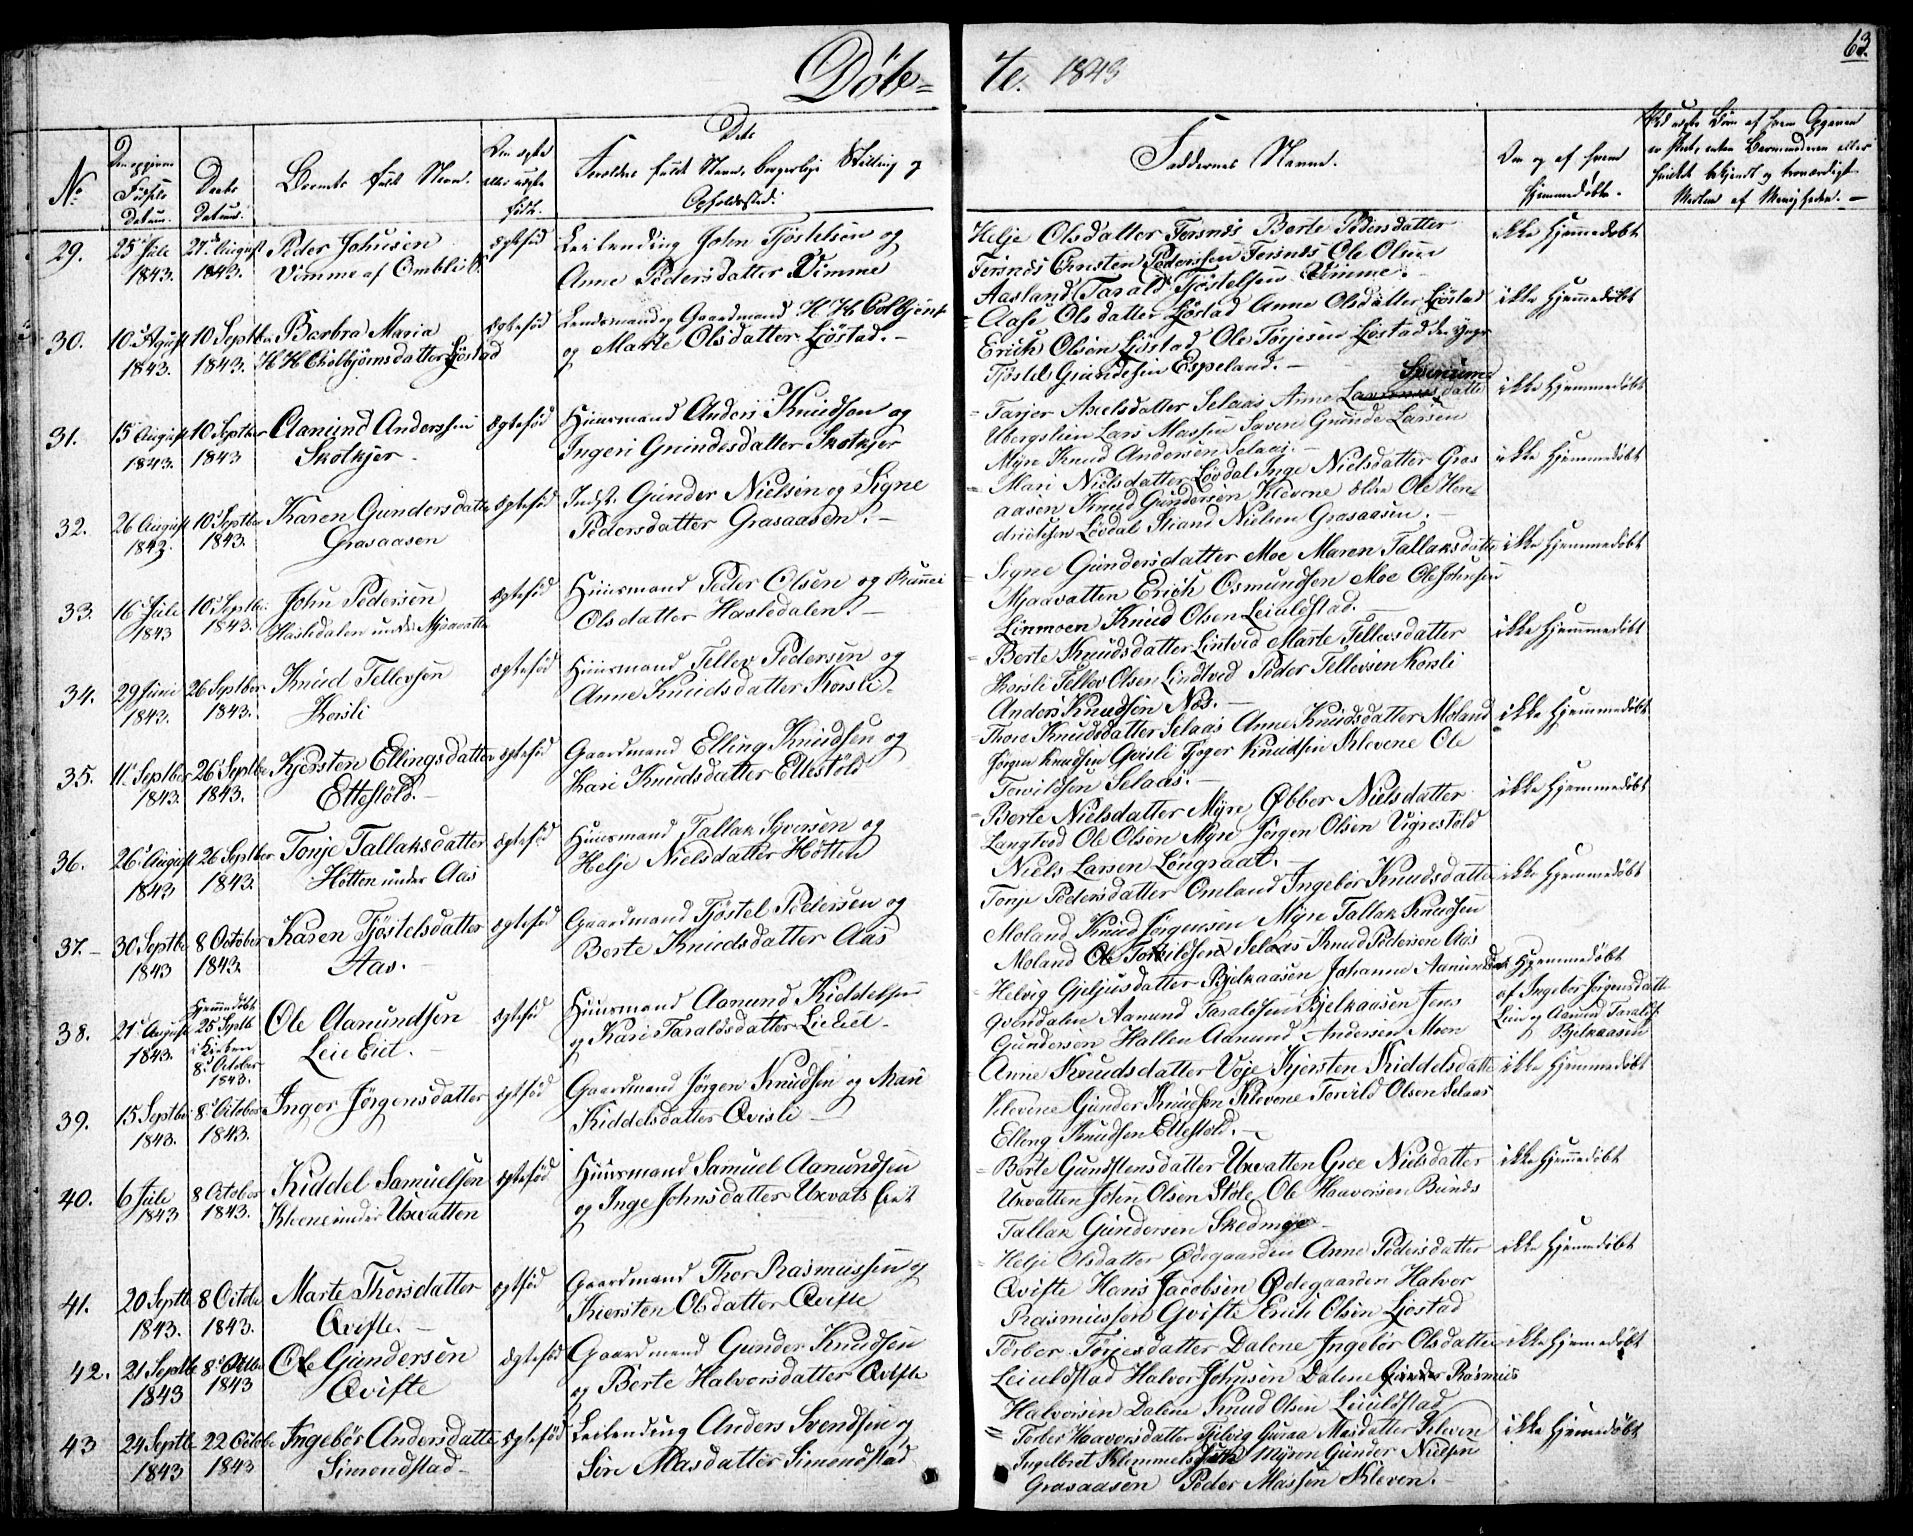 Døb=
te. 1843
63.
No
Den opgivne Fødsels Datum.
Daabs Datum.
Barnets fulde Navn.
Om ægte eller uægte født.
Dets Forældres fulde Navn, borgerlige Stilling og Opholdssted.
Faddernes Navne.
Om og af hvem hjemmedøbt.
29.
25 Jule 1843.
27 August 1843.
Peder Johnsen
Vimme af Omblie S.
Ægtefød
Leilending John Tjøstelsen og
Anne Pedersdatter Vimme
Helje Olsdatter Tersnes Berte Pedersdatter
Tersnes Pedersen Tersnes Ole Olsen
Aasland Tarald Tjøstelsen Vimme.
ikke hjemmedøbt
30.
10 August 1843.
10 Septbr 1843.
Barbra Maria
H H Colbjørnsdatter Ljøstad
Ægtefød
Lendsmand og Gaardmand H H
og Marte Olsdatter Ljøstad.
Aase Olsdatter Ljøstad Anne Olsdatter Ljøstad
Erich Olsen Ljøstad Ole Terjesen Ljøstad den Yngr
Tjøstel Grundesen Espeland.
ikke hjemmedøbt
31.
15 August 1843.
10 Septber 1843
Aanund Anderssen
Skotkjer
Ægtefød
Huusmand Anders Knudsen og
Ingeri Grundesdatter Skotkjer
Tarjer Axelsdatter Selaas Anne datter
Ubergslien Lars Massen Saven Grunde Larsen
Myre Knud Andersen Selaas.
ikke hjemmedøbt
32.
26 August 1843.
10 Septber 1843.
Karen Gundersdatter
Grasaasen
Ægtefød
Indst. Gunder Nielsen og Signe
Pedersdatter Grasaasen.
Mari Nielsdatter Løvdal Inge Nielsdatter Gras
aasen Knud Gundersen Klevene Ole Hen=
dricksen Løvdal Nielsen Grasaasen.
ikke hjemmedøbt
33.
16 Jule 1843
10 Septbr 1843.
John Pedersen
Hasledalen under Mjaavatten
Ægtefød
Huusmand Peder Olsen og Runnei
Olsdatter Hasledalen.
Signe Gundersdatter Moe Maren Tallaksdatter
Mjaavatten Erich Osmundsen Moe Ole Johnsen
Linmoen Knud Olsen Leiuldstad.
ikke hjemmedøbt
34.
29 Juni 1843.
26 Septber 1843.
Knud Tellevsen
Korsli
Ægtefød
Huusmand Tellev Pedersen og
Anne Knudsdatter Korsli
Berte Knudsdatter Lintvid Marte Tellevsdatter
Korsli Tellev Olsen Lindtved Peder Tellevsen Korsli
Anders Knudsen Nes.
ikke hjemmedøbt
35.
11 Septber 1843.
26 Septbr 1843.
Kjersten Ellingsdatter
Ettestøld.
Ægtefød
Gaardmand Elling Knudsen og
Kari Knudsdatter Ettestøld
Thore Knudsdatter Selaas Anne Knudsdatter Moland
Jørgen Knudsen Qvisli Tjøger Knudsen Klevene Ole
Torvildsen Selaas.
ikke hjemmedøbt
36.
26 August 1843
26 Septber 1843.
Tonje Tallaksdatter
Hotten under Aas
Ægtefød
Huusmand Tallak Syversen og
Helje Nielsdatter Hotten
Berte Nielsdatter Myre Øbber Nielsdatter
Langtved Ole Olsen Myre Jørgen Olsen Vigrestøld
Niels Larsen Longraat.
ikke hjemmedøbt
37.
30 Septbr 1843
8 October 1843.
Karen Tjøstelsdatter
Aas.
Ægtefød
Gaardmand Tjøstel Pedersen og
Berte Knudsdatter Aas
Tonje Pedersdatter Omland Ingebør Knudsdatter
Moland Knud Jørgensen Myre Tallak Knudsen
Moland Ole Torvildsen Selaas Knud Pedersen Aas
ikke hjemmedøbt
38.
21 August 1843.
Hjemmedøbt 25 Septb i Kirken 8 October 1843.
Ole Aanundsen
Leie Eiet.
Ægtefød
Huusmand Aanund Kiddelsen
og Kari Taraldsdatter Lieeiet.
Helvig Gjeljusdatter Bjelkaasen Johanne Aanundsdat
Qvendalen Aanund Taraldsen Bjelkaasen Jens
Gundersen Hallen Aanund Andersen Moen
Hjemmedøbt af Ingebor Jørgensdatter Leie og Aanund Taralds. Bjelkaasen
39.
15 Septber 1843.
8 October 1843.
Inger Jørgensdatter
Ægtefød
Gaardmand Jørgen Knudsen og Mari
Kiddelsdatter Qvisle
Anne Knudsdatter Voje Kjersten Kiddelsdatter
Klevene Gunder Knudsen Klevene Torvild Olsen Selaas
Elleng Knudsen Ettestøld.
ikke hjemmedøbt
40.
6 Jule 1843
8 October 1843.
Kiddel Samuelsen
Klevene under Uxvatten
Ægtefød
Huusmand Samuel Aanundsen
og Inge Johnsdatter Uxvats Eiet
Berte Gundstensdatter Uxvatten Groe Nielsdatter
Uxvatten John Olsen Støle Ole Haavorsen Bunds
Tallak Gundersen Skedmoe
ikke hjemmedøbt
41.
20 Septb 1843.
8 Octbr 1843.
Marte Thorsdatter
Qvifte.
Ægtefød
Gaardmand Thor Rasmussen og
Kiersten Olsdatter Qvifte
Helje Olsdatter Ødegaarden Anne Pedersdatter
Qvifte Hans Jacobsen Ødegaarden Halvor
Rasmussen Qvifte Erich Olsen Ljøstad
ikke hjemmedøbt
42.
21 Septb 1843
8 Octbr 1843
Ole Gundersen
Qvifte
Ægtefød
Gaardmand Gunder Knudsen
og Berte Halvorsdatter Qvifte
Torber Terjesdatter Dalene Ingebør Olsdatter
Leiuldstad Halvor Johnsen Dalene Rasmus
Halvorsen Dalene Knud Olsen Leiuldstad
ikke hjemmedøbt
43
24 Septb 1843
22 Octobr 1843
Ingebør Andersdatter
Simonstad
Ægtefød
Leilending Anders Svendsen og
Siri Masdatter Simonstad
Torber Haavorsdatter Guraa Masdatter Kleven
Ingelbret Klemmetsen Myren Gunder Nielsen
Grasaasen Peder Massen Kleven.
ikke hjemmedøbt